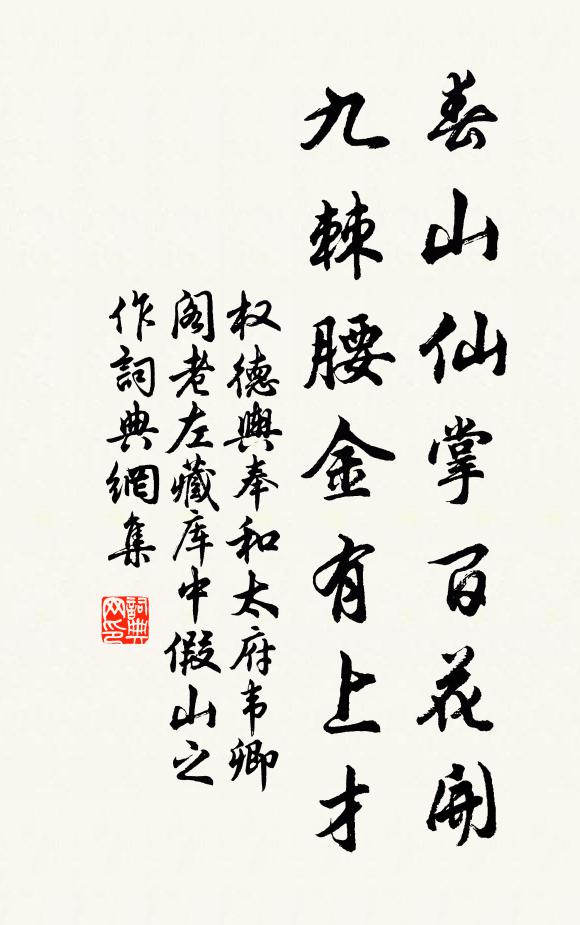 春山仙掌百花開
九棘腰金有上才
权德輿奉和太府韦卿
阁老左藏库中假山之
作詞典網集
詞典网印